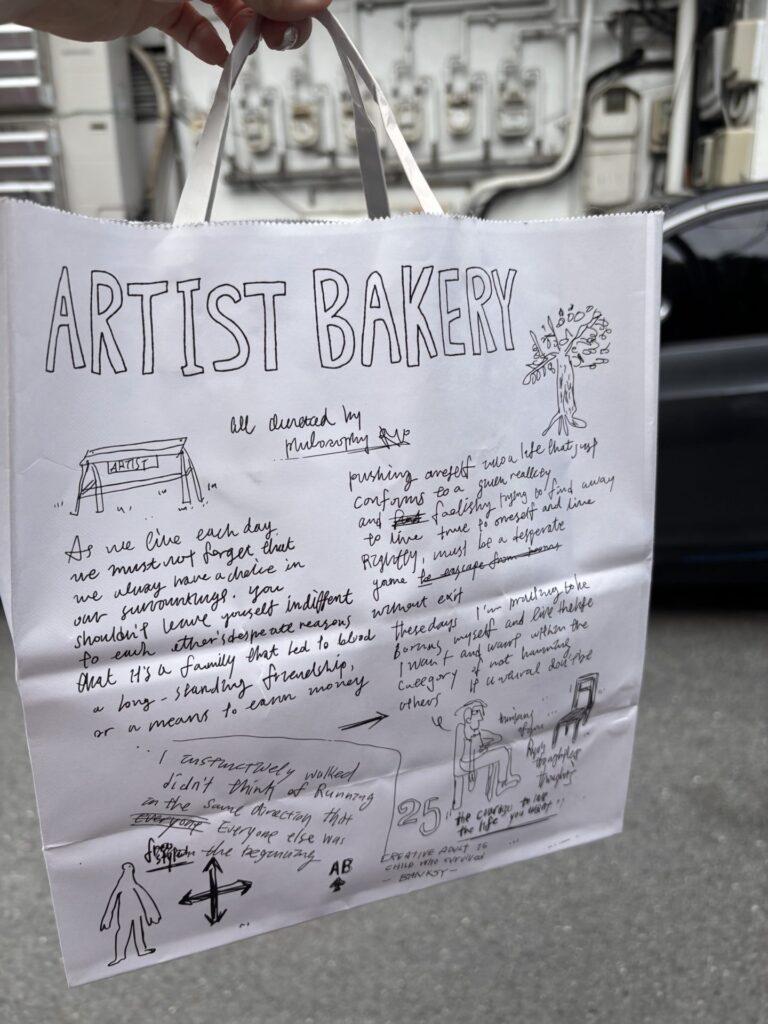 ARTIST BAKERY
all curated by
philosophy
ARTIST
As we live each day
we must not forget that
we alway have a choice in
our surrountings. you
shouldn't leave yourself indiffent
to each other's desperate reasons
that it's a family that led to blood
a long-standing friendship,
or a means to earn money
pushing oneself into a life that just
conforms to a given reality
and foolishy trying to find away
to live true to oneself and live
Rightly, must be a desperate
game to escape from
without exit
These days I'm to be
myself and live the life
I want and want within the
category if not
others if a don't be
I instinctively walked
didn't think of Running
in the same direction that
everyone Everyone else was
from the beginning
thinking
thoughtless
thoughts
25
"the courage to live
the life you want"
CREATIVE ADULT IS
CHILD WHO survived
- BANKSY -
AB